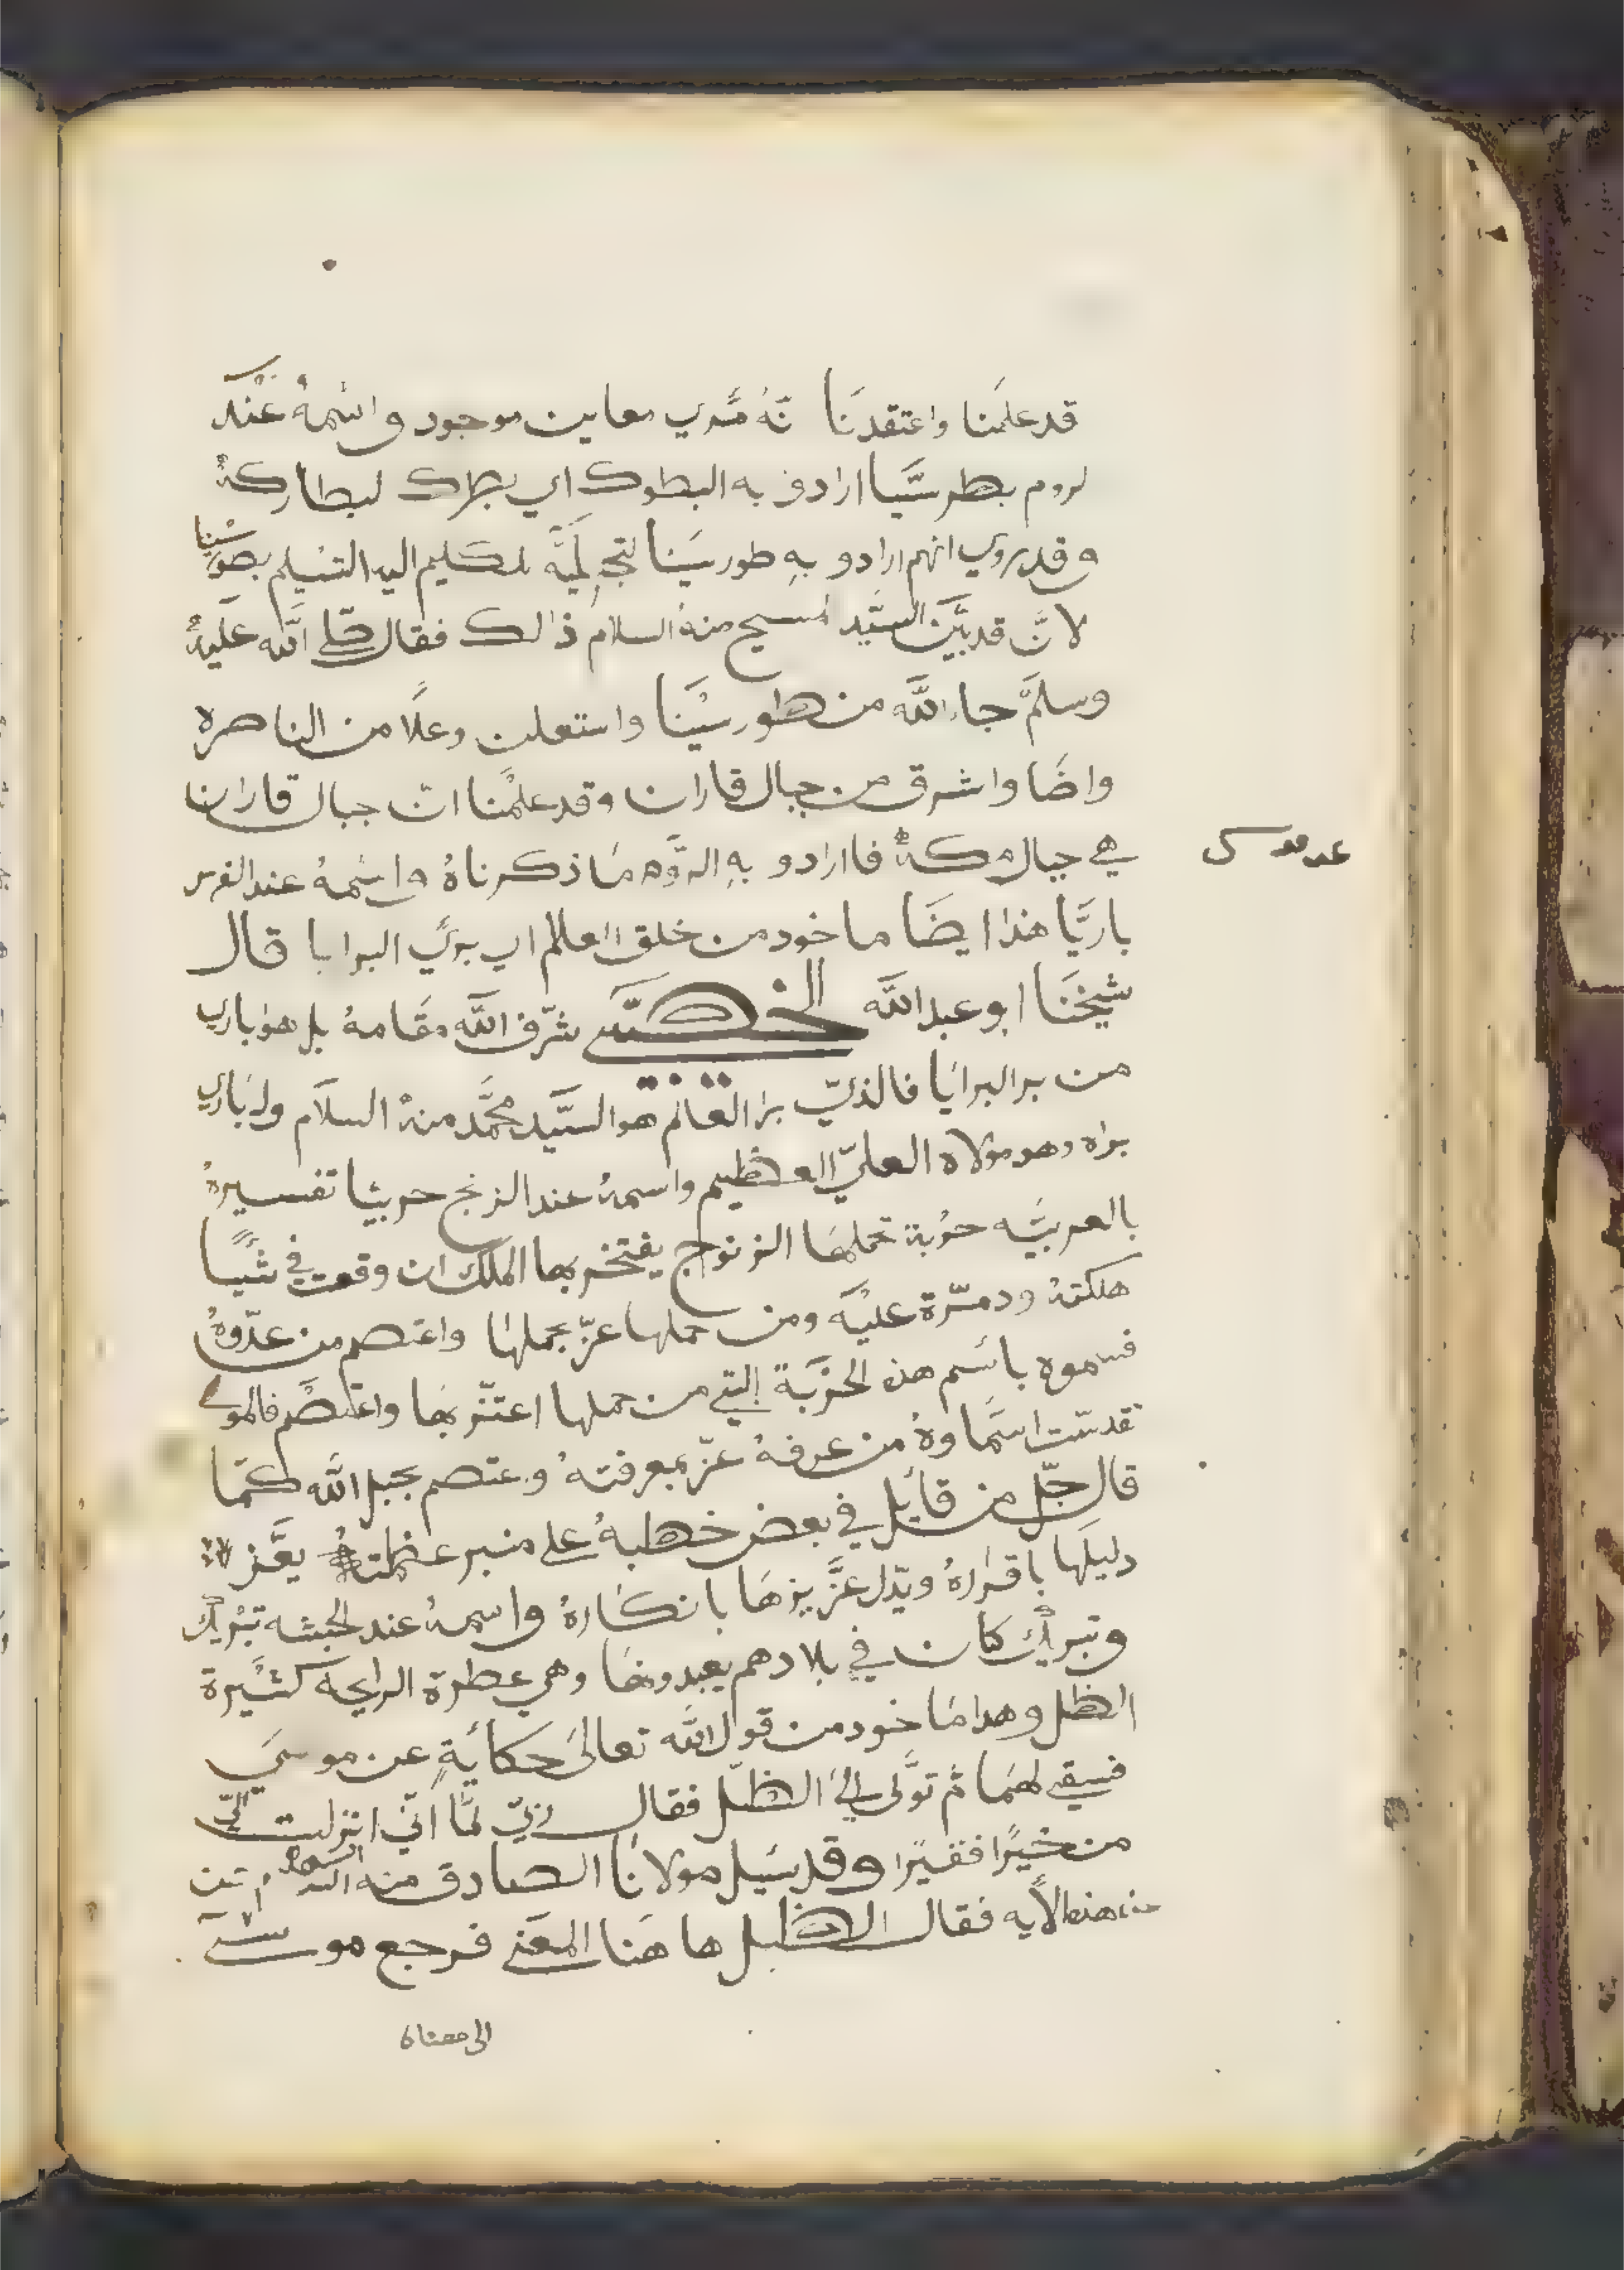 قد علمنا واعتقدنا نه مُري معاين موجود واسمه عند
لروم بطرسيّا ارادو به البطرك اي بطرك لبطاركة
وقد يروي انهم ارادو به طور سينا لتجليه للكليم اليه التسليم بطور سينا
لانّ قد بيّن السيّد المسيح منه السلام ذالك فقال صلي الله عليه
وسلم جاء الله من طور سينا واستعلن وعلا من الناصره
واضا واشرق من جبال فاران وقد علمنا ان جبال فاران
هي جبال مكة فا ارادو به الروم ما ذكرناه واسمه عند الفرس
عدموسى
باريّا هذا ايضا ماخود من خلق العالم اي بري البرايا قال
شيخنا ابو عبد الله الخصيبي شرّف الله مقامه بل هو باري
من برا البرايا فالذيّ برا العالم هو السيّد محمّد منه السلام ولباري
براه وهو مولاه العليّ العظيم واسمه عند الزنج حربيا تفسيره
بالعربيّه حربة تحملها الزنوج يفتخر بها الملك ان وقعت في شيًا
هلكته ودمّرة عليه ومن حملها عزّ بحملها واعتصم من عدّوه
فسموه باسم هذه الحربة التي من حملها اعتز بها واعتصم فالمولى
تقدست اسماوه من عرفه عزّ بمعرفته وعتصم بحبل الله كما
قال جلّ من قايل في بعض خطبه على منبر عظمته يعّز
دليلها باقراره ويذل عزيزها بانكاره واسمه عند الحبشه تبريك
وتبريك كان في بلادهم يعبدونها وهي عطرة الرايحة كثيرة
الظل وهدا ماخود من قول الله تعالى حكاية عن موسى
فسقي لهما ثم تولّى الى الظلّ فقال ربّ لما انّي انزلت اليّ
من خيرًا فقيرًا وقد سيل مولانا الصادق منه السلام عن
هذه الايه فقال الظل ها هنا المعنى فرجع موسى
الى معناه